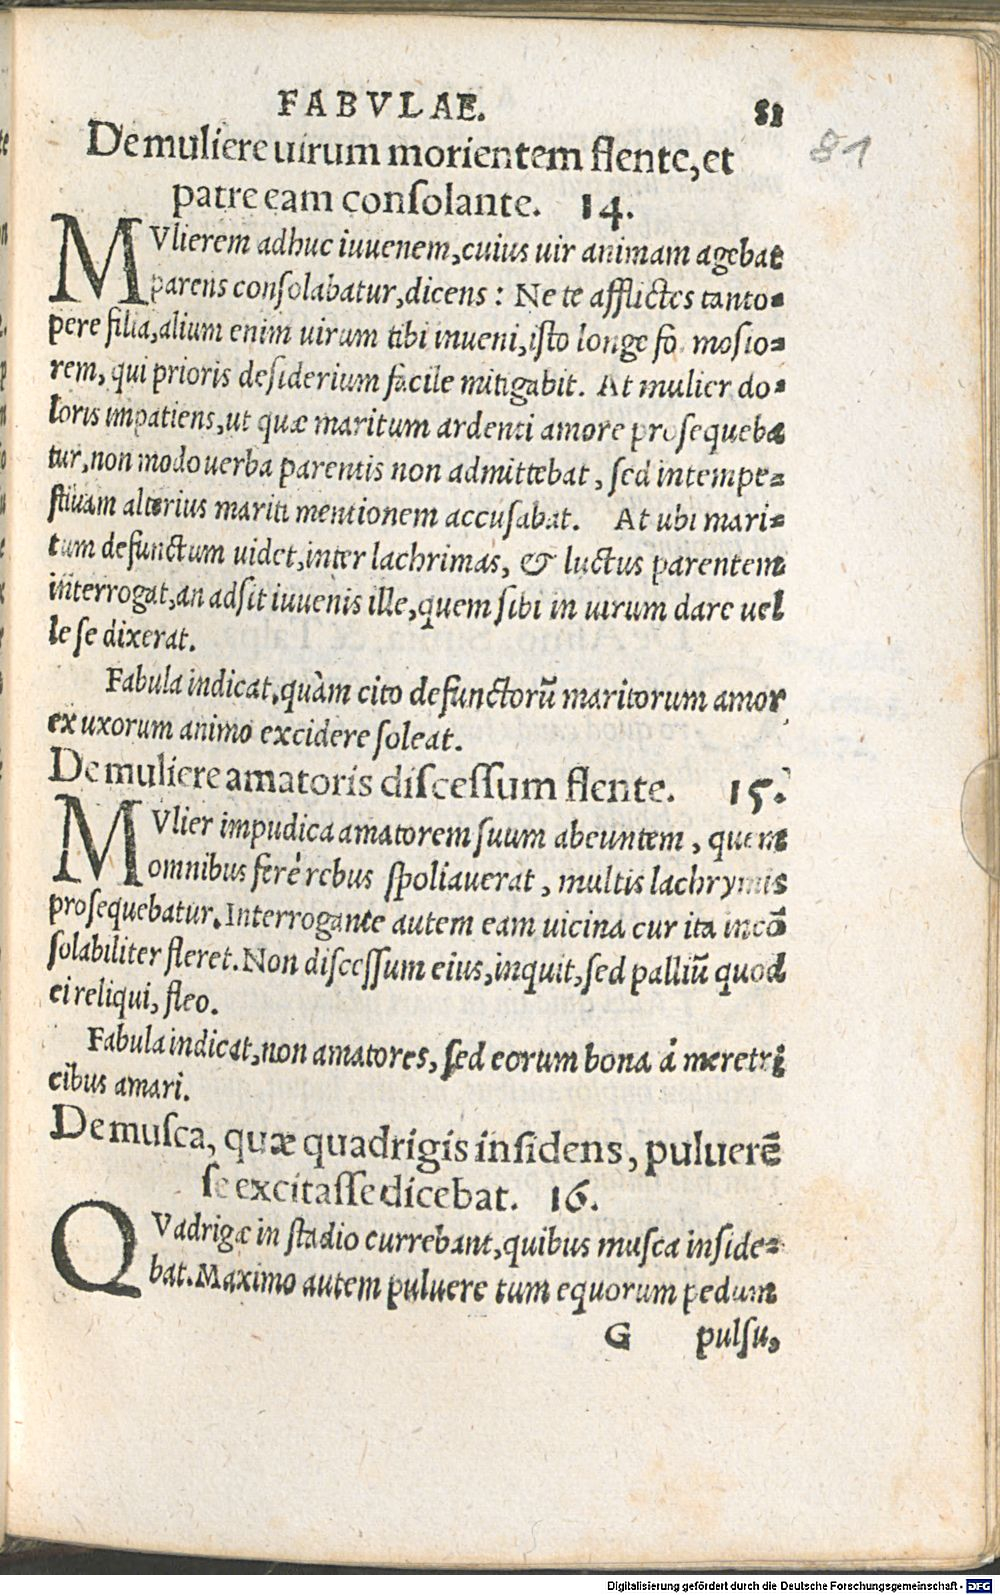 FABVLAE. 81
81
De muliere uirum morientem flente, et
patre eam conſolante. 14.
MVlierem adhuc iuuenem, cuius uir animam agebat
parens conſolabatur, dicens: Ne te afflictes tanto-
pere filia, alium enim uirum tibi inueni, iſto longe formoſio-
rem, qui prioris deſiderium facile mitigabit. At mulier do-
loris impatiens, ut quæ maritum ardenti amore proſequeba
tur, non modo uerba parentis non admittebat, ſed intempe-
ſtiuam alterius mariti mentionem accuſabat. At ubi mari-
tum defunctum uidet, inter lachrimas, & luctus parentem
interrogat, an adſit iuuenis ille, quem ſibi in uirum dare uel
le ſe dixerat.
Fabula indicat, quàm cito defunctorũ maritorum amor
ex uxorum animo excidere ſoleat.
De muliere amatoris diſceſſum flente. 15.
MVlier impudica amatorem ſuum abeuntem, quem
omnibus ferè rebus ſpoliauerat, multis lachrymis
proſequebatur. Interrogante autem eam uicina cur ita incõ
ſolabiliter fleret. Non diſceſſum eius, inquit, ſed palliũ quod
ei reliqui, fleo.
Fabula indicat, non amatores, ſed eorum bona á meretri
cibus amari.
De muſca, quæ quadrigis inſidens, puluerẽ
ſe excitaſſe dicebat. 16.
QVadrigæ in ſtadio currebant, quibus muſca inſide-
bat. Maximo autem puluere tum equorum pedum
G pulſu,
Digitalisierung gefördert durch die Deutsche Forschungsgemeinschaft - DFG